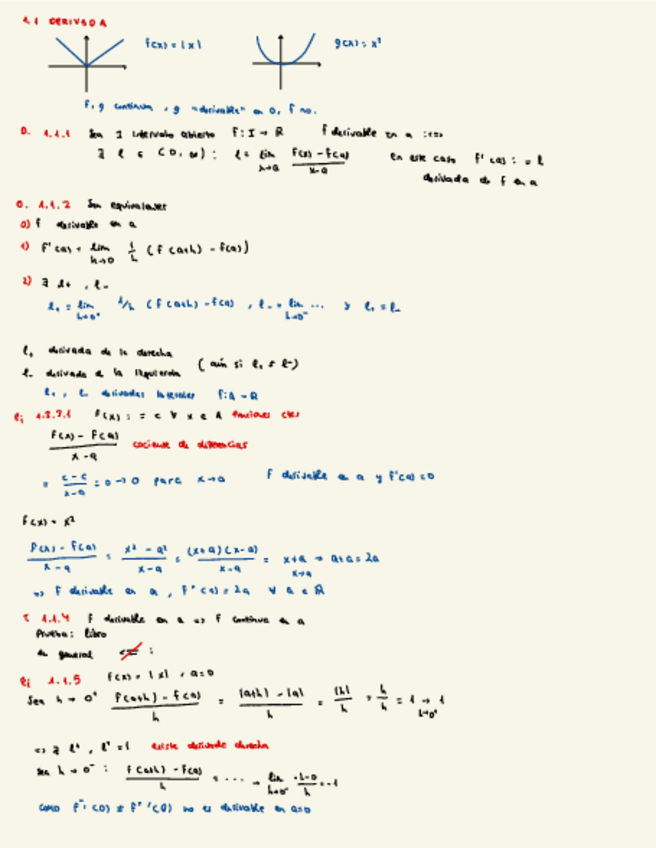 1.1 DERIVADA
f(x) = |x| g(x) = x²
f, g continua, g "derivable" en 0, f no.
D. 1.1.1 Sea I intervalo abierto f: I → R f derivable en a :<=>
∃ l ∈ : l = lim x→a f(x) - f(a) / x - a en este caso f'(a) := l
derivada de f en a
1.1.2 Son equivalentes
0) f derivable en a
1) f'(a) = lim h→0 1/h (f(a+h) - f(a))
2) ∃ l+, l-
l+ = lim h→0+ 1/h (f(a+h) - f(a), l- = lim h→0- ... y l+ = l-
l+ derivada de la derecha
l- derivada de la izquierda (aún si l+ ≠ l-)
l+, l- derivadas laterales f: A → R
Ej f(x) := c ∀ x ∈ A funciones ctes
f(x) - f(a) / x - a cociente de diferencias
= c - c / x - a = 0 → 0 para x → a f derivable en a y f'(a) = 0
f(x) = x²
f(x) - f(a) / x - a = x² - a² / x - a = (x+a)(x-a) / x - a = x + a → x→a a+a = 2a
=> f derivable en a, f'(a) = 2a ∀ a ∈ R
T 1.1.4 f derivable en a => f continua en a
Prueba: libro
en general <= :
Ej 1.1.5 f(x) = |x|, a = 0
Sea h → 0+ f(a+h) - f(a) / h = |a+h| - |a| / h = |h| / h = h / h = 1 → h→0+ 1
=> ∃ l+, l+ = 1 existe derivada derecha
sea h → 0- : f(a+h) - f(a) / h = ... → lim h→0- -h-0 / h = -1
como f-'(0) ≠ f+'(0) no es derivable en a=0